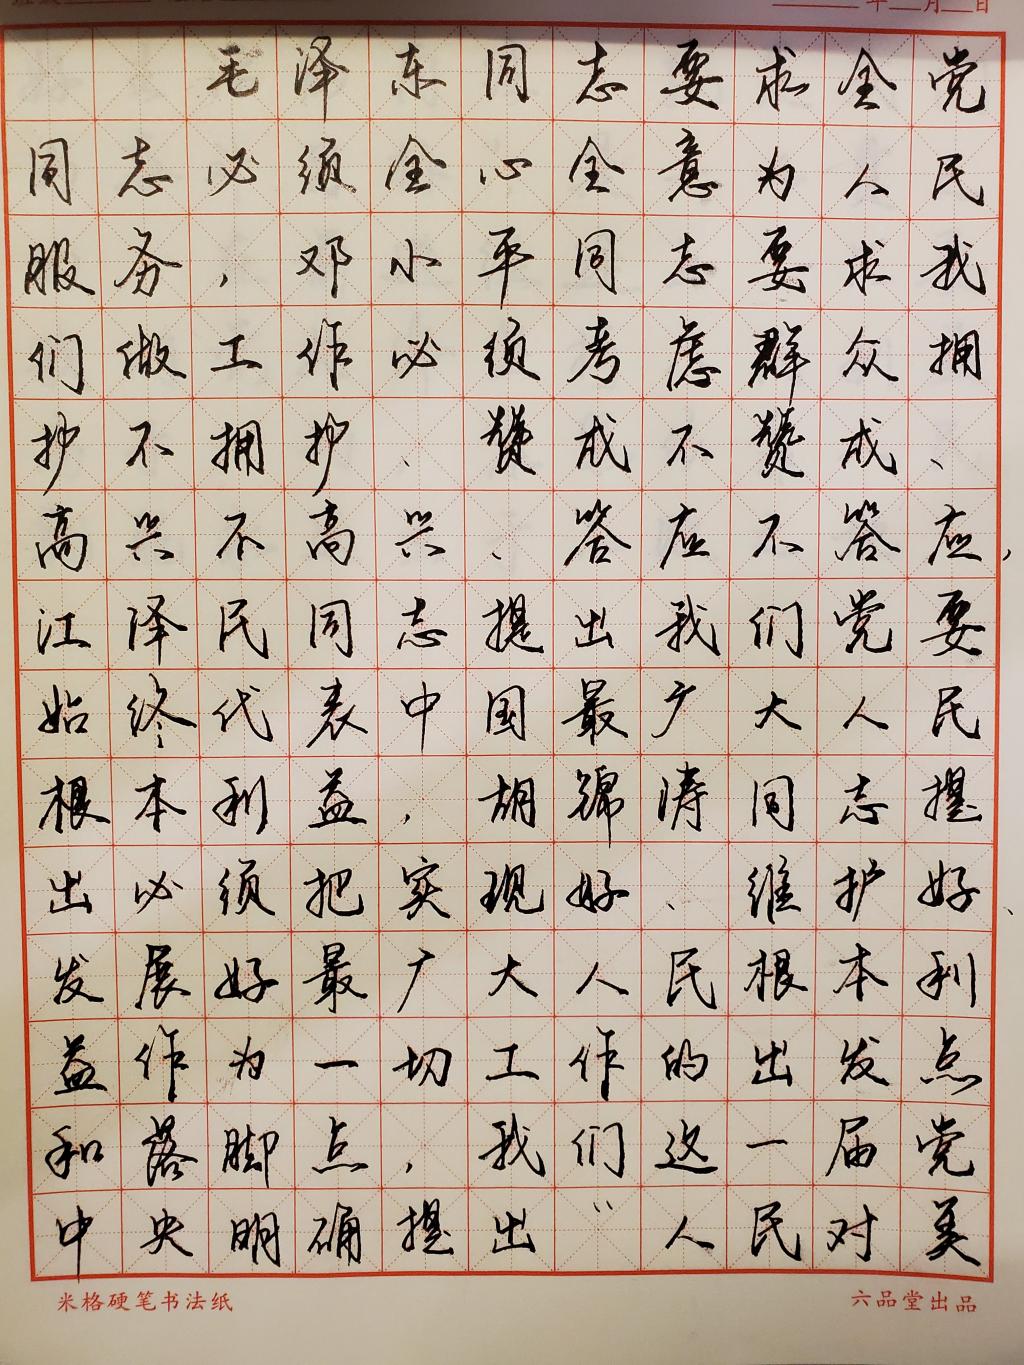 年 月 日
毛泽东同志要求全党
同志必须全心全意为人民
服务，邓小平同志要求我
们做工作必须考虑群众拥
护不拥护、赞成不赞成、
高兴不高兴、答应不答应，
江泽民同志提出我们党要
始终代表中国最广大人民
根本利益，胡锦涛同志提
出必须把实现好、维护好、
发展好最广大人民根本利
益作为一切工作的出发点
和落脚点，我们这一届党
中央明确提出“人民对美
米格硬笔书法纸
六品堂出品